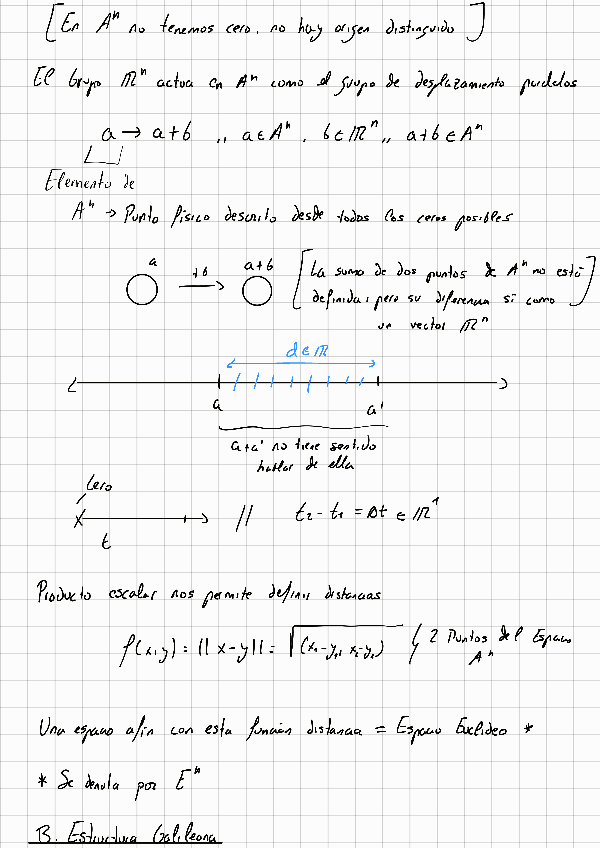 [En Aⁿ no tenemos cero, no hay origen distinguido]
El Grupo ℝⁿ actua en Aⁿ como el grupo de desplazamiento paralelos
a → a+b ,, a ∈ Aⁿ, b ∈ ℝⁿ,, a+b ∈ Aⁿ
Elemento de
Aⁿ → Punto físico descrito desde todos los ceros posibles
a +b a+b
[La suma de dos puntos de Aⁿ no está
definida; pero su diferencia si como
un vector ℝⁿ]
d ∈ ℝ
a a'
a+a' no tiene sentido
hablar de ella
Cero
t // t₂ - t₁ = Δt ∈ ℝ¹
Producto escalar nos permite definir distancias
ρ(x,y) = ||x-y|| = √(x₁-y₁, x₂-y₂) 2 Puntos del Espacio
Aⁿ
Una espacio afín con esta función distancia = Espacio Euclideo *
* Se denota por Eⁿ
B. Estructura Galileana